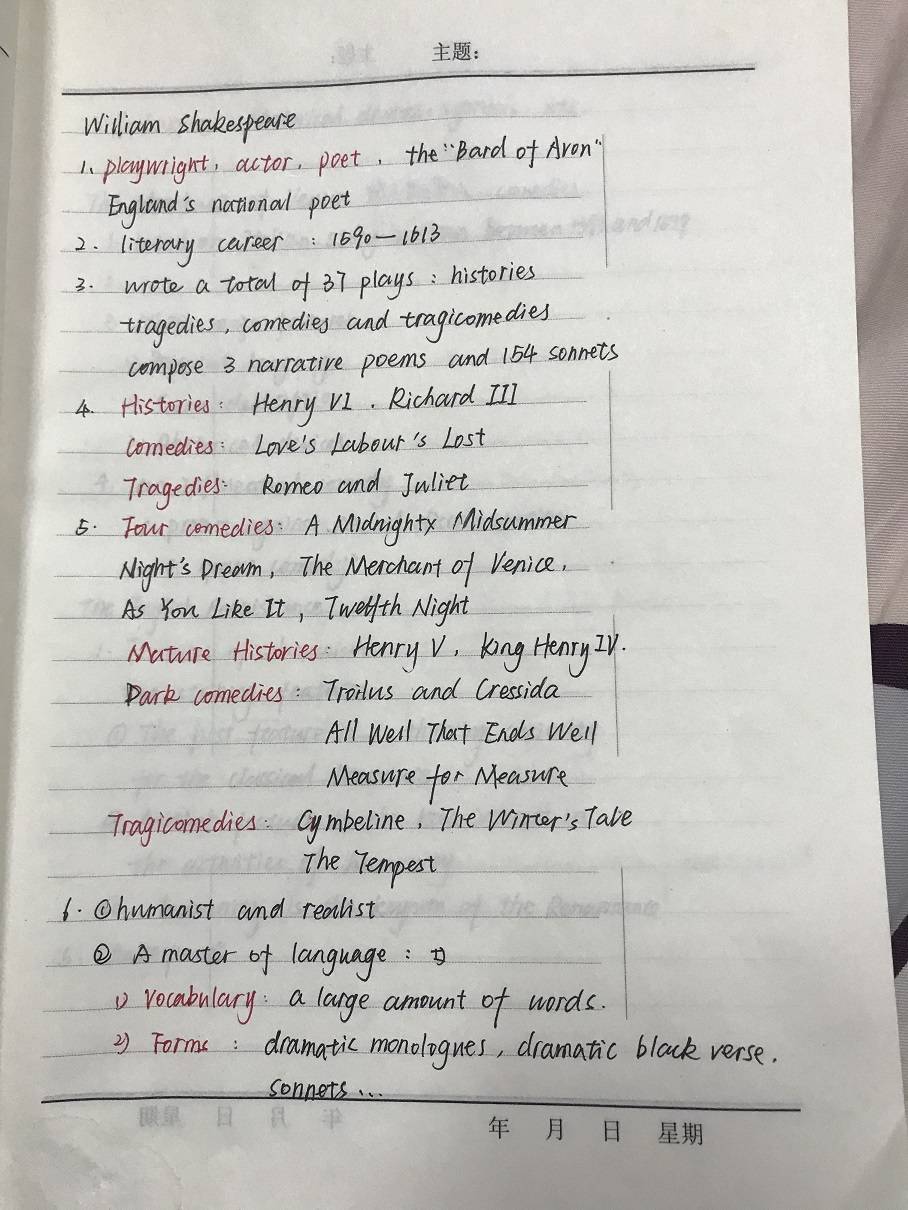 主题:
William Shakespeare
1. playwright, actor, poet, the "Bard of Avon"
England's national poet
2. literary career : 1590—1613
3. wrote a total of 37 plays : histories
tragedies, comedies and tragicomedies
compose 3 narrative poems and 154 sonnets
4. Histories: Henry VI . Richard III
Comedies: Love's Labour's Lost
Tragedies: Romeo and Juliet
5. Four comedies: A Midnightx Midsummer
Night's Dream, The Merchant of Venice,
As You Like It, Twelfth Night
Mature Histories: Henry V, King Henry IV.
Dark comedies: Troilus and Cressida
All Well That Ends Well
Measure for Measure
Tragicomedies: Cymbeline, The Winter's Tale
The Tempest
6. ①humanist and realist
② A master of language :
1) Vocabulary: a large amount of words.
2) Forms : dramatic monologues, dramatic black verse,
sonnets...
年 月 日 星期